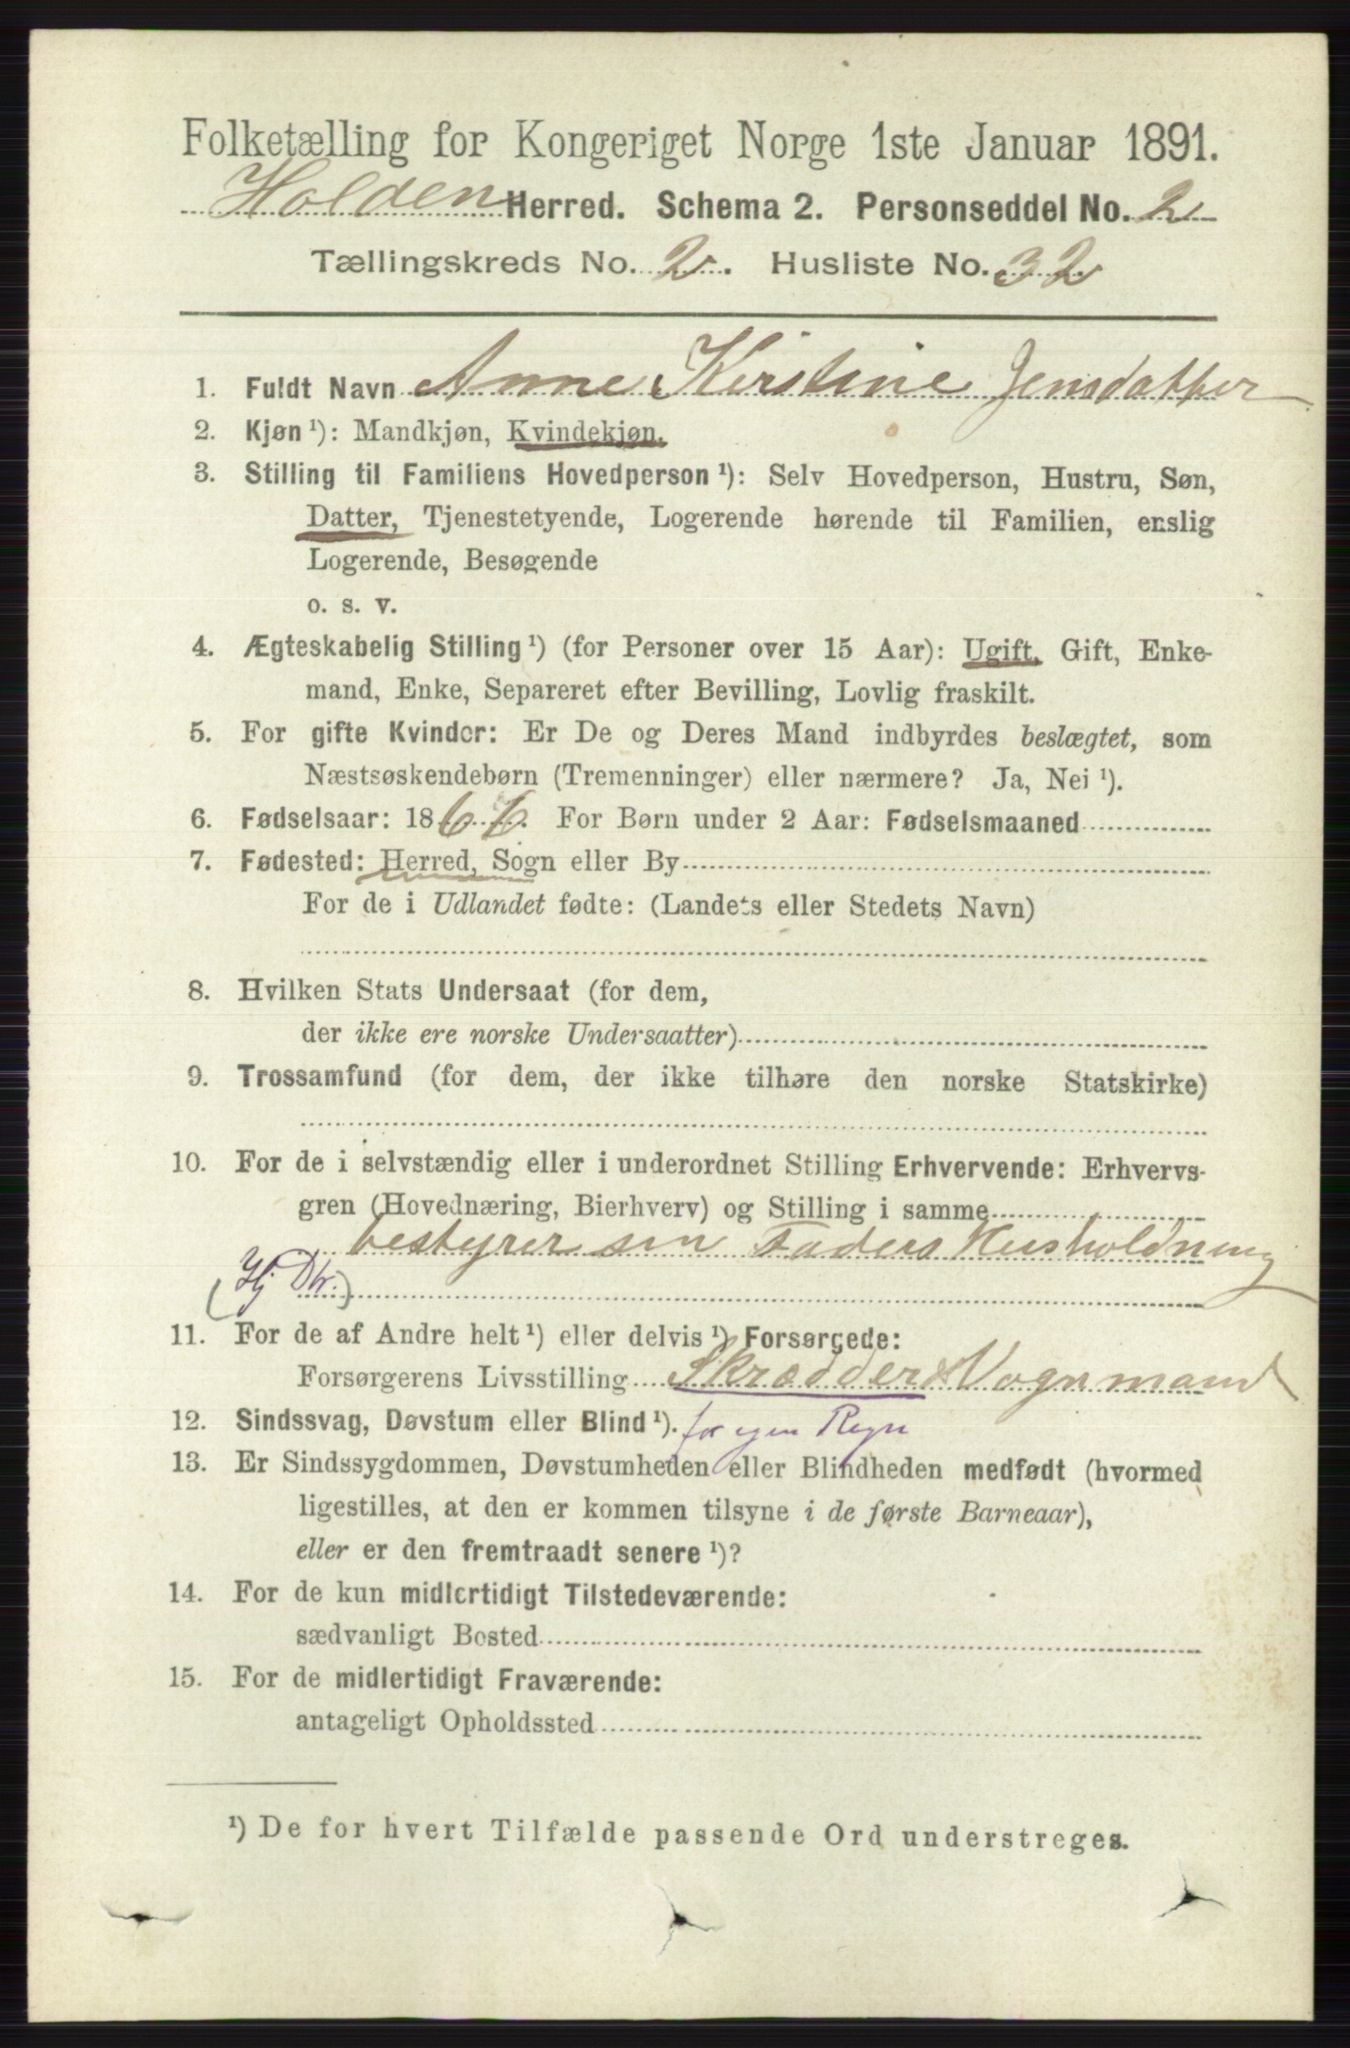 Folketælling for Kongeriget Norge 1ste Januar 1891.
Holden Herred. Schema 2. Personseddel No. 2
Tællingskreds No. 2. Husliste No. 32
1. Fuldt Navn Anne Kirstine Jensdatter
2. Kjøn ¹): Mandkjøn, Kvindekjøn.
3. Stilling til Familiens Hovedperson ¹): Selv Hovedperson, Hustru, Søn,
Datter, Tjenestetyende, Logerende hørende til Familien, enslig
Logerende, Besøgende
o. s. v.
4. Ægteskabelig Stilling ¹) (for Personer over 15 Aar): Ugift, Gift, Enke-
mand, Enke, Separeret efter Bevilling, Lovlig fraskilt.
5. For gifte Kvinder: Er De og Deres Mand indbyrdes beslægtet, som
Næstsøskendebørn (Tremenninger) eller nærmere? Ja, Nei ¹).
6. Fødselsaar: 1866. For Børn under 2 Aar: Fødselsmaaned
7. Fødested: Herred, Sogn eller By
For de i Udlandet fødte: (Landets eller Stedets Navn)
8. Hvilken Stats Undersaat (for dem,
der ikke ere norske Undersaatter)
9. Trossamfund (for dem, der ikke tilhøre den norske Statskirke)
10. For de i selvstændig eller i underordnet Stilling Erhvervende: Erhvervs-
gren (Hovednæring, Bierhverv) og Stilling i samme
bestyrer sin Faders Husholdning
(Hj Dtr.)
11. For de af Andre helt ¹) eller delvis ¹) Forsørgede:
Forsørgerens Livsstilling Skrædder & Vognmand
12. Sindssvag, Døvstum eller Blind ¹). for egen Regn
13. Er Sindssygdommen, Døvstumheden eller Blindheden medfødt (hvormed
ligestilles, at den er kommen tilsyne i de første Barneaar),
eller er den fremtraadt senere ¹)?
14. For de kun midlertidigt Tilstedeværende:
sædvanligt Bosted
15. For de midlertidigt Fraværende:
antageligt Opholdssted
¹) De for hvert Tilfælde passende Ord understreges.